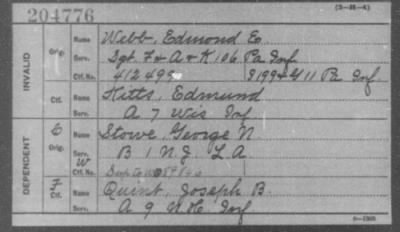 204776
(3-35-4)
INVALID
Orig.
Name Webb, Edmond E.
Serv. Sgt F & A & K 106 Pa Inf
Ctf. No. 412 499 S 199 & G 11 Pa Inf.
Ctf.
Name Kitts, Edmund
Serv. A 7 Wis Inf
DEPENDENT
C Orig.
Name Stowe, George N
Serv. B 1 N.J. L A.
W Ctf. No.
Ctf.
Name Quint, Joseph B.
Serv. A 9 N.H. Inf